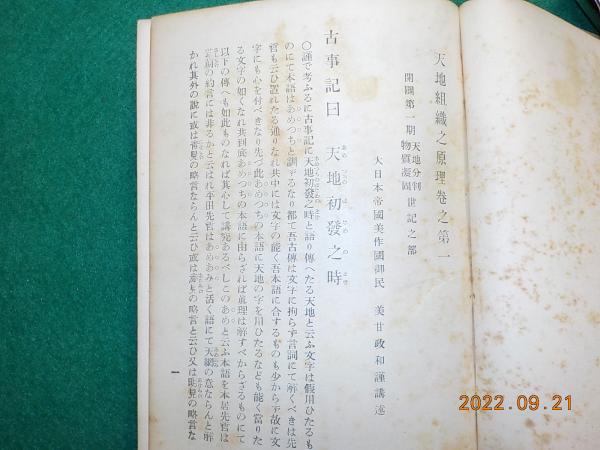 天地組織之原理卷之第一
開闢第一期 天地分判物質凝固 世記之部
大日本帝國美作國御民 美甘政和謹講述
古事記曰 天地初發之時
○謹で考ふるに古事記に天地初發之時と語り傳へたる天地と云ふ文字は假用ひたるも
のにて本語はあめつちと訓ずるなり都て吾古傳は文字に拘らず言詞にて解くべきは先
哲も云ひ置れたる通りなれ共中には文字の能く吾本語に合するものも少からず故に文
字にも心を付べきなり先づ此あめつちの本語に天地の字を用ひたるなども能く當りた
る文字の如くなれ共到底あめつちの本語に由らざれば眞理は解すべからざるものにて
以下の傳へも如此ものなれば其心して講究あるべしこのあめと云ふ本語を本居先官は
の約言には非るかと云はれ平田先官はあめあみと活く語にて天網の意ならんと解
かれ其外の說に或は の略言ならんと云ひ或は の略言と云ひ又は の略言な
一
2022.09.21